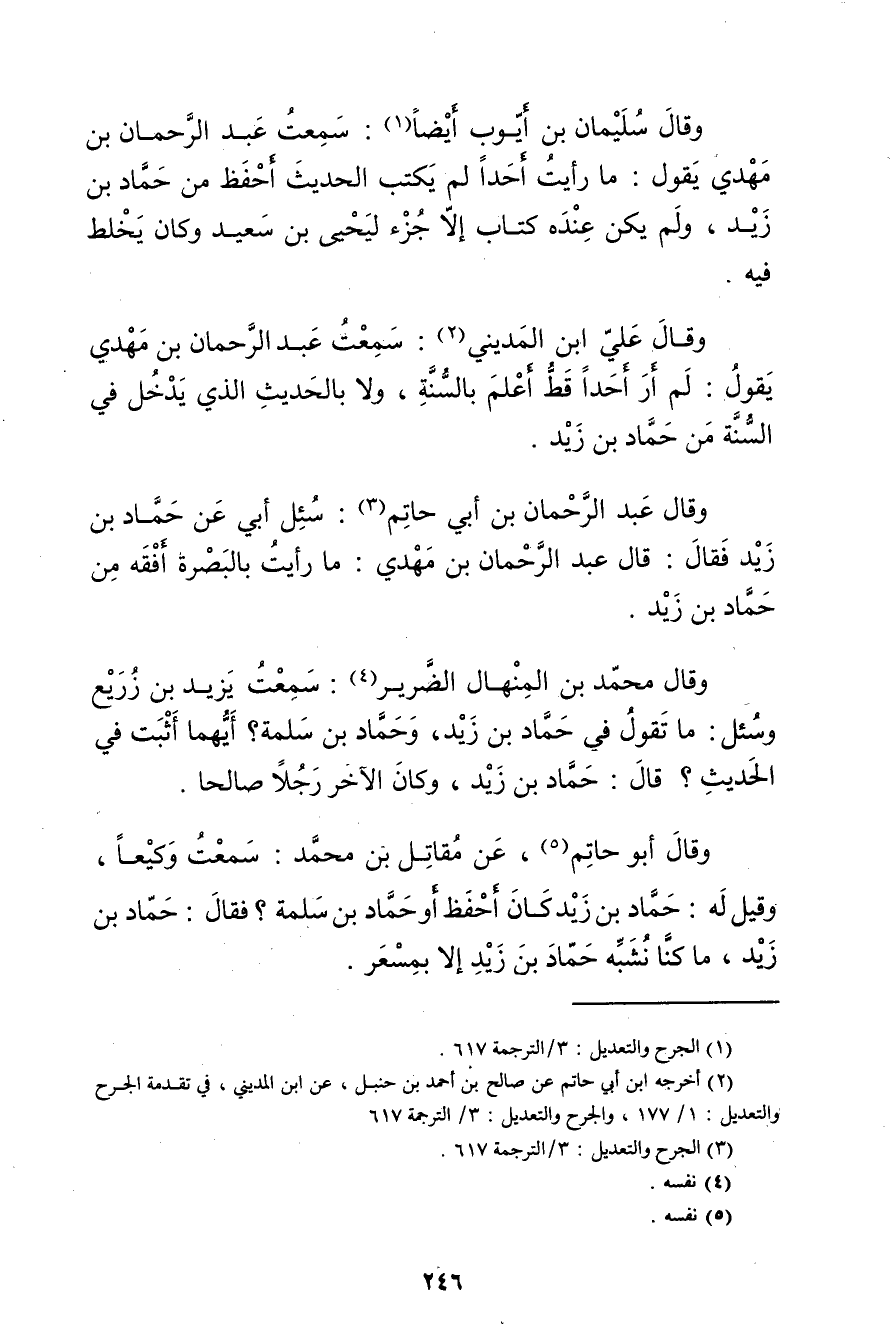 وقالَ سُلَيْمان بن أَيّوب أَيْضاً(١) : سَمِعتُ عَبد الرَّحمان بن
مَهْدي يَقول : ما رأيتُ أَحَداً لم يَكتب الحديثَ أَحْفَظ من حَمَّاد بن
زَيْد ، ولَم يكن عِنْدَه كتاب إلّا جُزْء ليَحْيى بن سَعيد وكان يَخْلط
فيه .
وقالَ عَليّ ابن المَديني(٢) : سَمِعْتُ عَبد الرَّحمان بن مَهْدي
يَقولُ : لَم أَرَ أَحَداً قَطُّ أَعْلمَ بالسُّنَّةِ ، ولا بالحَديثِ الذي يَدْخُل في
السُّنَّة مَن حَمَّاد بن زَيْد .
وقال عَبد الرَّحْمان بن أبي حاتِم(٣) : سُئِل أبي عَن حَمَّاد بن
زَيْد فَقالَ : قال عبد الرَّحْمان بن مَهْدي : ما رأيتُ بالبَصْرة أَفْقَه مِن
حَمَّاد بن زَيْد .
وقال محمّد بن المِنْهال الضَّرير(٤) : سَمِعْتُ يَزيد بن زُرَيْع
وسُئل : ما تَقولُ في حَمَّاد بن زَيْد، وَحَمَّاد بن سَلمة؟ أَيُّهما أَثْبَت في
الحَديثِ ؟ قالَ : حَمَّاد بن زَيْد ، وكانَ الآخَر رَجُلاً صالحا .
وقالَ أبو حاتِم(٥) ، عَن مُقاتِل بن محمَّد : سَمعْتُ وَكيْعاً ،
وقيل لَه : حَمَّاد بن زَيْد كَانَ أَحْفَظ أَو حَمَّاد بن سَلمة ؟ فقالَ : حَمّاد بن
زَيْد ، ما كنَّا نُشَبِّه حَمّادَ بنَ زَيْدِ إلا بمِسْعَر .
(١) الجرح والتعديل : ٣/الترجمة ٦١٧ .
(٢) أخرجه ابن أبي حاتم عن صالح بن أحمد بن حنبل ، عن ابن المديني ، في تقدمة الجرح
والتعديل : ١/ ١٧٧ ، والجرح والتعديل : ٣/ الترجمة ٦١٧
(٣) الجرح والتعديل : ٣/الترجمة ٦١٧ .
(٤) نفسه .
(٥) نفسه .
٢٤٦